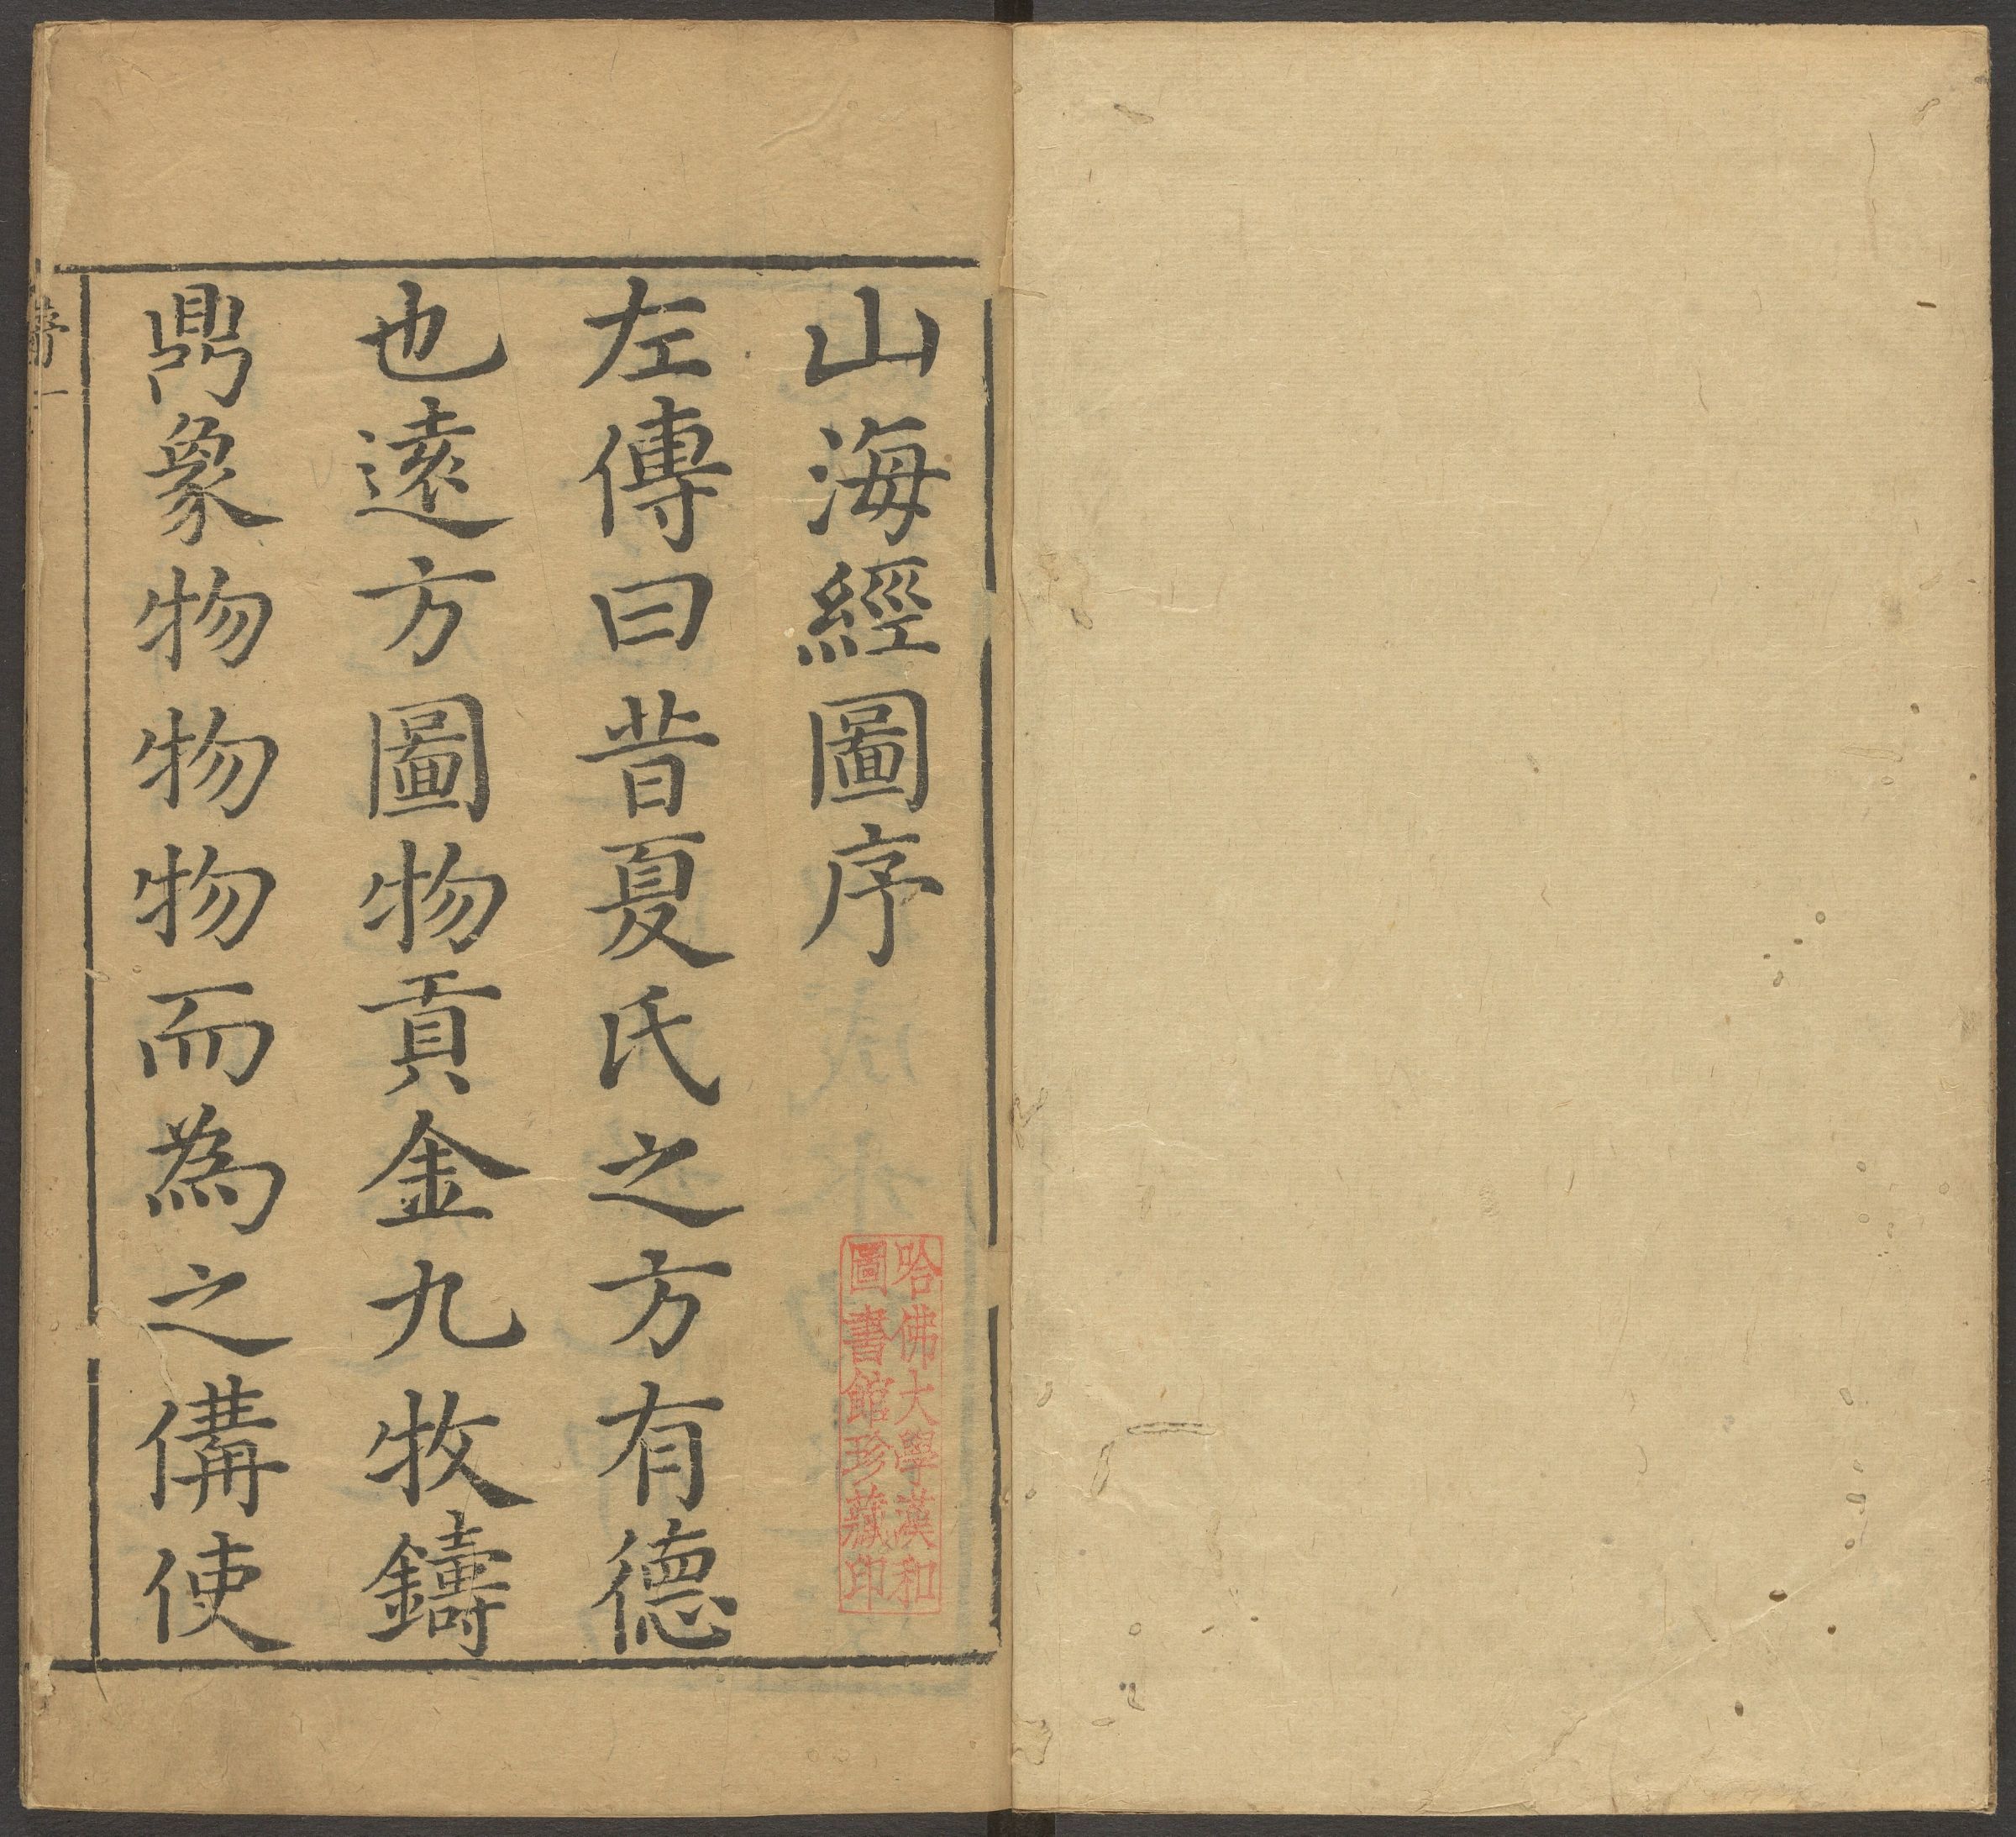 山海經圖序
左傳曰昔夏氏之方有德
也遠方圖物貢金九牧鑄
鼎象物物物而為之備使
哈佛大學漢和
圖書館珍藏印